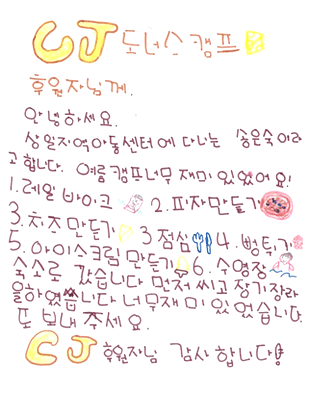 CJ 도너스캠프
후원자님께.
안녕하세요.
상일지역아동센터에 다니는 송은숙이라
고합니다. 여름캠프너무재미있있어요!
1.레일 바이크 2.피자만들기
3.치즈만들기 3점심 4.뻥튀기
5.아이스크림만들기 6.수영장
숙소로 갔습니다 먼저씨고 장기장라
을하였습니다 너무재미있었습니다.
또 보내 주세요.
CJ 후원자님 감사합니다